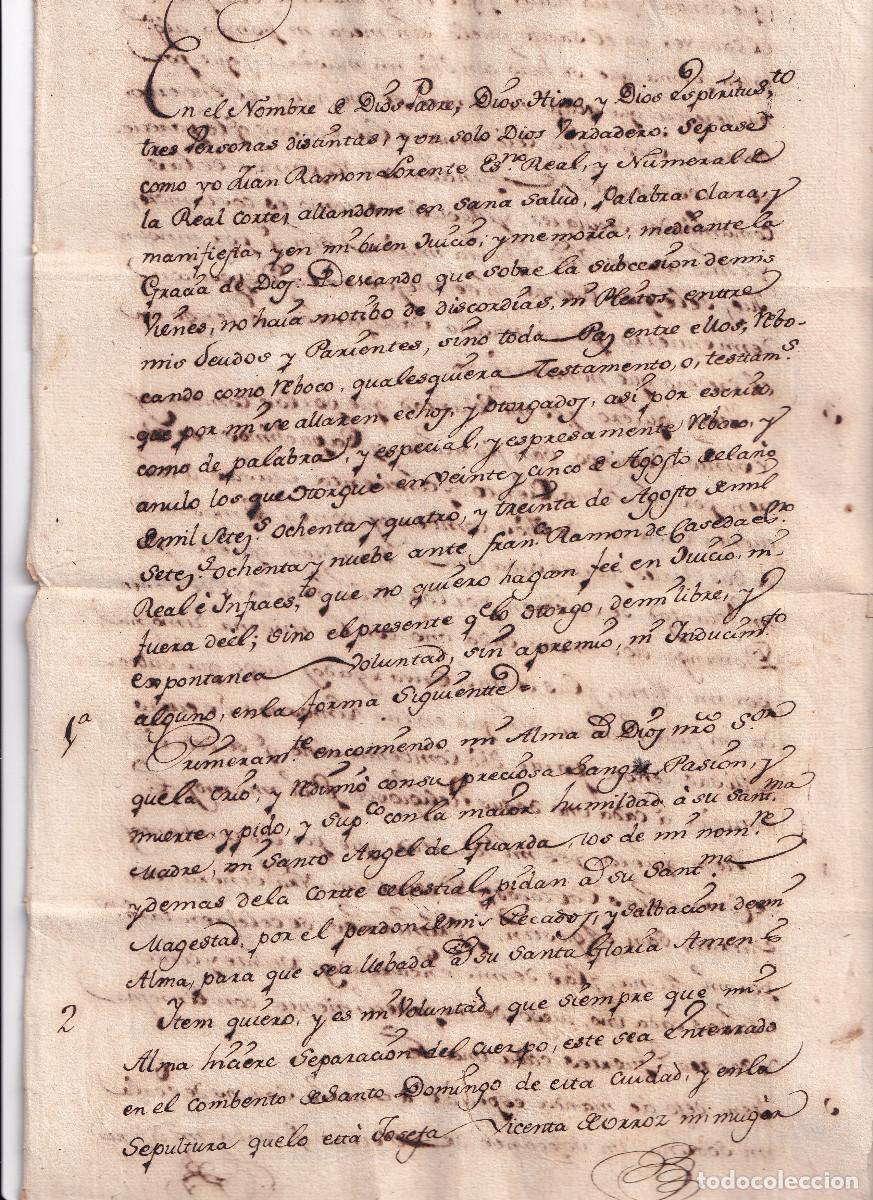 En el Nombre de Dios Padre, Dios Hijo, y Dios Espiritu S.to
tres Personas distintas, y un solo Dios Verdadero: Sepase
como yo Juan Ramon Lorente Es.no Real, y Numeral de
la Real Corte, allandome en sana salud, Palabra clara, y
manifiesta, y en mi buen Juicio, y memoria, mediante la
Gracia de Dios: Deseando que sobre la subcesion de mis
Vienes, no haia motibo de discordias, ni Pleitos, entre
mis deudos y Parientes, sino toda Paz entre ellos, Rebo-
cando como Reboco, qualesquiera Testamento, o, testiam.s
que por mi se allaren echos, y otorgados, asi por escrito,
como de palabra, y especial, y espresamente Reboco, y
anulo los que otorgue en veinte y cinco de Agosto del año
de mil Setez.s ochenta y quatro, y treinta de Agosto de mil
Setez.s ochenta y nuebe ante Fran.co Ramon de Caseda es.no
Real è Infraes.to que no quiero hagan feè en Juicio, ni
fuera de el; sino el presente q.e lo otorgo, de mi libre, y
expontanea Voluntad, sin apremio, ni Inducim.to
alguno, en la forma Siguiente=
1a Primeram.te encomiendo mi Alma a Dios nro S.or
que la Crio, y Redimio con su preciosa Sangre, Pasion, y
muerte, y pido, y sup.co con la maior humildad à su Sant.ma
Madre, mi Santo Angel de Guarda, los de mi nom.re
y demas de la Corte Celestial, pidan a su Sant.ma
Magestad, por el perdon de mis Pecados, y salbacion de mi
Alma, para que sea llebada a su Santa Gloria Amen
2 Item quiero, y es mi Voluntad, que siempre que mi
Alma hiciere Separacion del cuerpo, este sea Enterrado
en el combento de Santo Domingo de esta Ciudad, y en la
Sepultura que lo està Josefa Vicenta de Orroz mi muger
todocoleccion